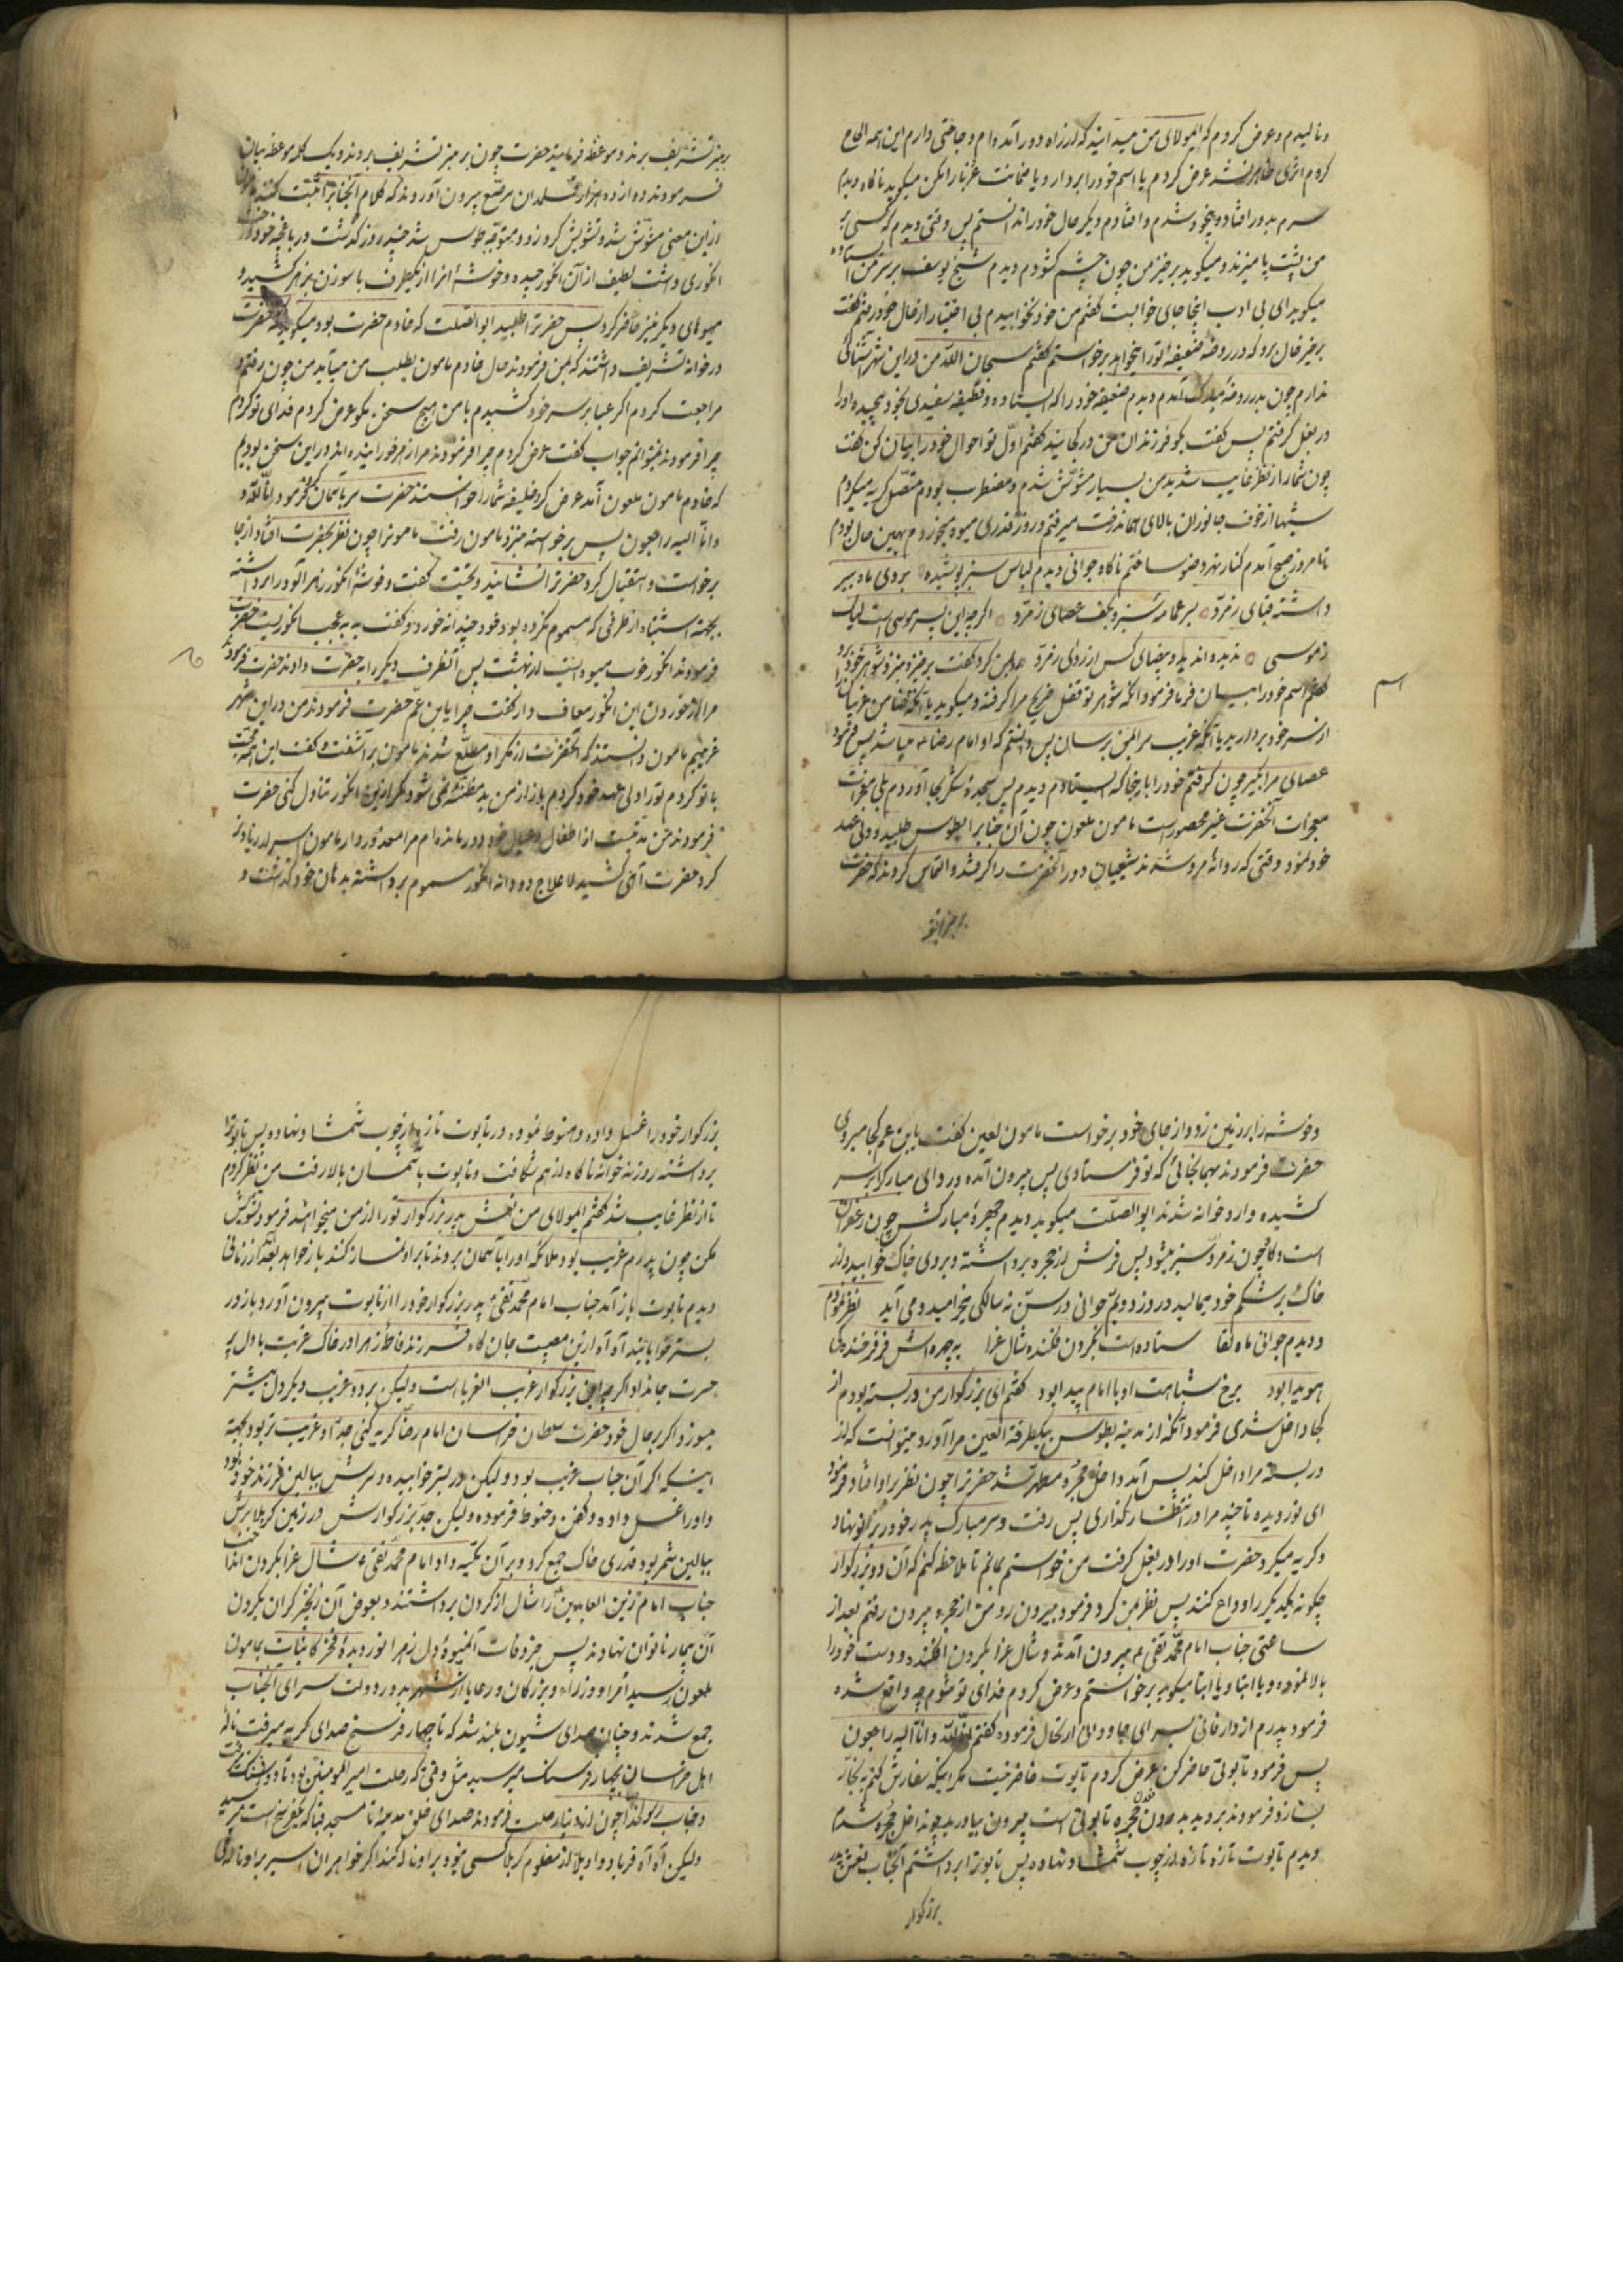 ونالیدم وعرض کردم که ایمولای من میدانید که از راه دور آمده‌ام و حاجتی دارم این همه الحاح
کردم اثری ظاهر نشد عرض کردم یا اسم خود را بردار و یا ضمانت غربا را مکن میکوید ناکاه دیدم
سرم بدور افتاد و بیخود شدم و افتادم دیکر حال خود را ندانستم پس وقتی دیدم که کسی بر
من پشت پا میزند و میکوید برخیز من چون چشم کشودم دیدم شیخ یوسف بر سر من ایستاده
میکوید ای بی ادب اینجا جای خوابست کفتم من خود نخوابیدم بی اختیار از حال خود رفتم کفت
برخیز فلان برو که در روضه ضعیفهٔ تو را میخواهد برخواستم کفتم سبحان الله من در این شهر آشنائی
ندارم چون بدر روضهٔ مبارک آمدم دیدم ضعیفه خود را که ایستاده و قطیفه سفیدی بخود پیچیده او را
در بغل کرفتم پس کفت بکو فرزندان من در کجایند کفتم اول تو احوال خود را بیان کن کفت
چون شما از نظر غایب شدید من بسیار مشوّش شدم و مضطرب بودم متصل کریه میکردم
شبها از خوف جانوران بالای همان درخت میرفتم و روز قدری میوه میخوردم بهمین حال بودم
تا امروز صبح آمدم کنار نهر وضو ساختم ناکاه جوانی دیدم لباس سبز پوشیده بروی ماه بیر
داشته قبای زمرّد بسر عمامه سبز و بکف عصای زمرّد اکرچه این پسر موسی است لیک
زموسی ندیده اند ید و بیضای کس از ردای زمرّد بمن کرد و کفت برخیز و بنزد شوهر خود برو
کفتم اسم خود را بیان فرما فرمود آنکه شوهر تو قفل ضریح مرا کرفته و میکوید یا آنکه ضامن غریبان
از سر خود بردارید یا آنکه غریب مرا بمن برسان پس دانستم که او امام رضا ع میباشد پس فرمود
عصای مرا بکیر چون کرفتم خود را باینجا که ایستادم دیدم پس سجدهٔ شکر بجا آوردم بلی معجزات
معجزات آنحضرت غیر محصور است مامون ملعون چون آن جناب را بطوس طلبید و ولی عهد
خود نمود وقتی که روانهٔ مرو شدند شیعیان دور آنحضرت را کرفتند و التماس کردند که حضرت
بر منبر تشریف برند و موعظه فرمایند حضرت چون بر منبر تشریف بردند و یک کلمه موعظه بیان
فرمودند دوازده هزار قلمدان مرصّع بیرون آوردند که کلام آنجناب را ثبت کنند
از این معنی مشوّش شد و تشویش کرد و متوجّه طوس شد چند روز کذشت در باغچه خود
انکوری داشت لطیف از آن انکور چیده و خوشهٔ انرا از یکطرف با سوزن بزهر کشید و
میوهای دیکر نیز حاضر کرد پس حضرترا طلبید ابوالصلت که خادم حضرت بود میکوید که حضرت
در خوانه تشریف داشتند که بمن فرمودند حال خادم مامون بطلب من میآید من چون رفتم و
مراجعت کردم اکر عبا بر سر خود کشیدم با من هیچ سخن مکو عرض کردم فدای تو کردم
چرا فرمودند نمیتوانم جواب کفت عرض کردم چرا فرمودند مرا زهر خورانیده‌اند در این سخن بودیم
که خادم مامون ملعون آمد عرض کرد خلیفه شما را خواستند حضرت سر بآسمان کرد فرمود انّا للّه و
وانّا الیه راجعون پس برخواسته بنزد مامون رفت مامونرا چون نظر بحضرت افتاد از جا
برخواست و استقبال کرد حضرترا نشانید و تحیّت کفت و خوشهٔ انکور زهر آلود را برداشته
بجهتهٔ اشتباه از طرفی که مسموم نکرده بود خود چند دانه خورد و کفت به به عجب انکوریست حضرت
فرمودند انکور خوب میوه‌ایست از بهشت پس آنطرف دیکر را به حضرت داد حضرت فرمودند
مرا از خوردن این انکور معاف دار کفت چرا یابن عمّ حضرت فرمودند من در این شهر
غریبم مامون دانستند که آنحضرت از مکر او مطلّع شدند مامون بر آشفت و کفت این همه محبّت
با تو کردم تو را ولی عهد خود کردم باز از من بد مظنّه میشود مکر از این انکور تناول کنی حضرت
فرمودند من مدتیست از اطفال و عیال خود دور مانده‌ام مرا معذور دار مامون اسرار زیاد
کرد حضرت آهی کشید لاعلاج دو دانه انکور مسموم برداشته بدهان خود کذاشت و
وخوشه را بر زمین زد و از جای خود برخواست مامون لعین کفت یابن عمّ کجا میروی
حضرت فرمودند بهمانجائی که تو فرستادی پس بیرون آمده و ردای مبارک را بر سر
کشیده وارد خوانه شدند ابوالصلت میکوید دیدم چهرهٔ مبارکش چون زعفران
است و کاه چون زمرّد سبز میشود پس فرش از حجره برداشته و بروی خاک خوابید و از
خاک بر شکم خود میمالید در وزد دیدم جوانی در سنّ نه سالکی میخرامید و می آید نظر نمودم
و دیدم جوانی ماه لقا ستاده است بکردن فکنده شال عزا به چهره اش فر فرخنده
هویدا بود برخ شباهت او با امام پیدا بود کفتم ای بزرکوار من در بسته بودم از
کجا داخل شدی فرمود آنکه از مدینه بطوس بیکطرفة العین مرا آورد میتوانست که از
در بسته مرا داخل کند پس آمد داخل حجرهٔ مطهر شد حضرترا چون نظر بر او افتاد فرمود
ای نور دیده تا چند مرا در انتظار کذاری پس رفت و سر مبارک پدر خود در بزانو نهاد
و کریه میکرد حضرت او را در بغل کرفت من خواستم بمانم تا ملاحظه کنم که آن دو بزرکوار
چکونه یکدیکر را وداع کنند پس نظر بمن کرد و فرمود بیرون رو من از حجره بیرون رفتم بعد از
ساعتی جناب امام محمّد تقی ع بیرون آمدند و شال عزا بکردن افکنده و دست خود را
بالا نموده و یا ابتا و یا ابتا میکوید برخواستم و عرض کردم فدای تو شوم چه واقع شده
فرمود پدرم از دار فانی بسرای جاودانی ارتحال فرموده کفتم انّا للّه و انّا الیه راجعون
پس فرمود تابوتی حاضر کن عرض کردم تابوت حاضر نیست مکر اینکه سفارش کنم به نجّار
بسازد فرمودند بروید بدرون حجره تابوتی است بیرون بیاورید چون داخل حجره شدم
دیدم تابوت تازه تازه از چوب شمشاد نهاده پس تابوترا برداشتم آنجناب نعش پدر
بزرکوار
بزرکوار خود را غسل داده و حنوط نموده در تابوت تازه از چوب شمشاد نهاده پس تابوترا
برداشته روزنه خوانه ناکاه از هم شکافت و تابوت بآسمان بالا رفت من نظر کردم
تا از نظر غایب شد کفتم ایمولای من نعش پدر بزرکوار تو را از من میخواهند فرمود تشویش
مکن چون پدرم غریب بود ملائکه او را بآسمان بردند تا بر او نماز کنند باز خواهد آمد بعد از زمانی
دیدم تابوت باز آمد جناب امام محمّد تقی ع پدر بزرکوار خود را از تابوت بیرون آورد باز در
بستر خوابانید آه آه از این مصیبت جان کاه فرزند فاطمهٔ زهرا در خاک غربت با دل پر
حسرت جانداد اکرچه این بزرکوار غریب الغربا است ولیکن برد و غریب دیکر دل بیشتر
میسوزد اکر بر حال خود حضرت سلطان خراسان امام رضا کریه کنی جدّ او غریب تر بود بجهتهٔ
اینکه اکر آن جناب غریب بود ولیکن در بستر خوابیده و سرش ببالین فرزند خود بود
و او را غسل داده و کفن و حنوط فرموده ولیکن جدّ بزرکوارش در زمین کربلا سرش
ببالین شمر بود قدری خاک جمع کرد و بر آن تکیه داد امام محمّد تقی ع شال عزا بکردن انداخت
جناب امام زین العابدین را شال از کردن برداشتند و بعوض آن زنجیر کران بکردن
آن بیمار ناتوان نهادند پس خبر وفات آن میوهٔ دل زهرا نور دیدهٔ فخر کاینات بمامون
ملعون رسید امرا و وزراء و بزرکان و رعایا از شهر بدر دولت سرای آنجناب
جمع شدند و چنان صدای شیون بلند شد که تا چهار فرسخ صدای کریه میرفت نالهٔ
اهل خراسان بچهار فرسنک میرسید مثل وقتی که رحلت امیر المومنین بود
و جناب رسولخدا چون از دنیا رحلت فرمودند صدای خلق مدینه تا مسجد قبا که یکفرسخ است میرسید
ولیکن آه آه فریاد و اویلا از مظلوم کربلا کسی نبود بر او ناله کند اکر خواهران اسیر بر او ناله